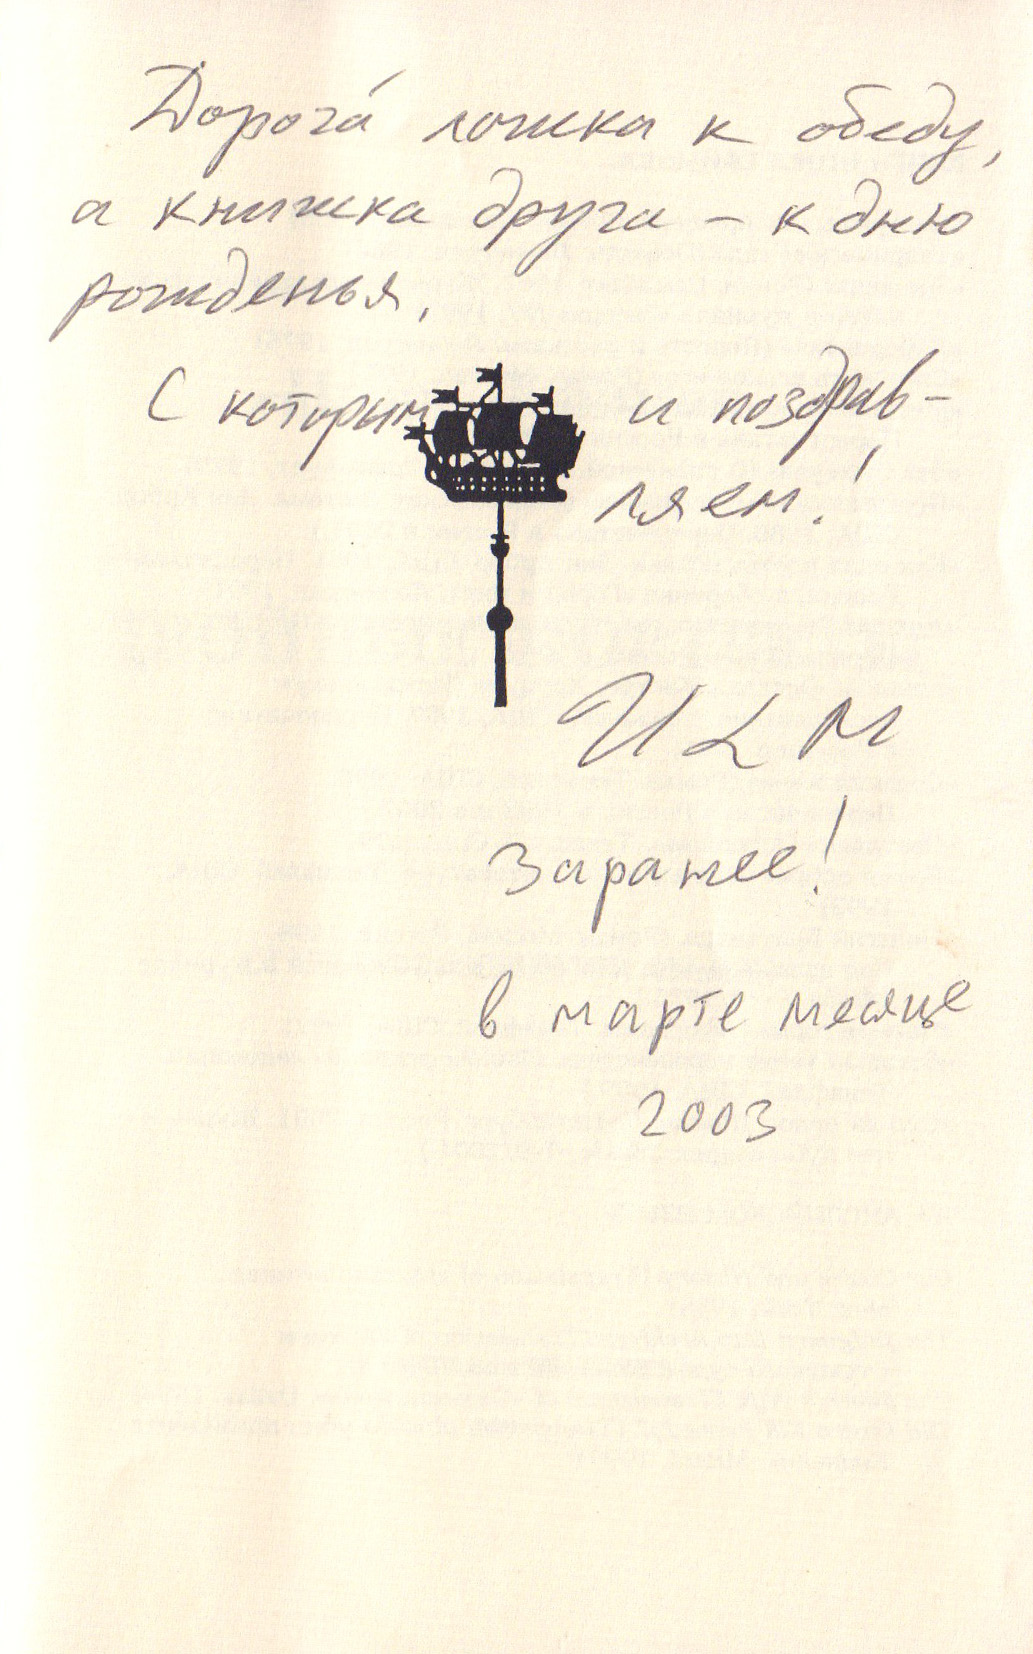 Дорога́ ложка к обеду,
а книжка друга – к дню
рожденья,
С которым и поздрав-
ляем!
И & М
Заранее!
в марте месяце
2003